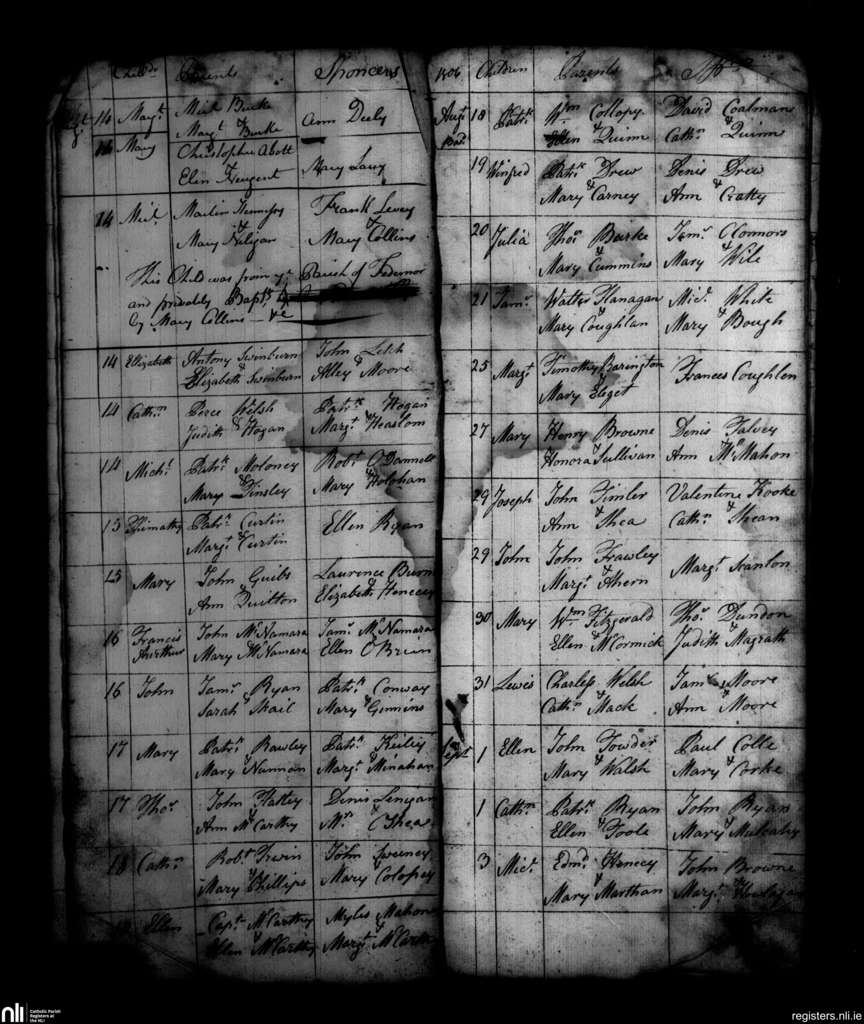 Childn Parents Sponcers
14 Mayt Mich Burke & Mayt Burke Ann Deely
14 Mary Christopher Abott & Elen Neugent Mary Lacy
14 Micl Martin Hennissy & Mary Naligan Frank Levey & Mary Collins
This Child was from ye Parish of Fedemor
and privately Baptd
by Mary Collins &c
14 Elizabeth Antony Swinburn & Elizabeth Swinburn John Letch & Alley Moore
14 Cathn Perce Welsh & Judith Hogan Patrk Hogan & Margt Heaslom
14 Michl Patrk Moloney & Mary Tinsley Robt O'Dannell & Mary Holohan
15 Thimathy Patrk Curtin & Margt Curtin Ellen Ryan
15 Mary John Guibs & Ann Quilton Laurence Burn & Elizabeth Henecey
16 Francis Arthur John McNamara & Mary McNamara Jams McNamara & Ellen O'Brien
16 John Jams Ryan & Sarah Skail Patrk Conway & Mary Gimins
17 Mary Patrk Rawley & Mary Nunnan Patrk Keiley & Margt Minahan
17 Thos John Flattey & Ann McCarthy Denis Lenegan & Mrs O'Shea
18 Cathn Robt Irwin & Mary Phillips John Sweeney & Mary Colopey
Ellen Capt McCarthy & Ellen McCarthy Myles Mahon & Margt McCarthy
1806 Children Parents
Augt 18 Patrk Wm Collopy & Ellen Quinn David Coalman & Cathn Quinn
19 Winfred Patrk Drew & Mary Carney Denis Drew & Ann Crotty
20 Julia Thos Burke & Mary Cummins Jams O'Connors & Mary Wile
21 Jams Walter Flanagan & Mary Coughlan Micl White & Mary Bough
25 Margt Timothy Barington & Mary Eloget Frances Coughlen
27 Mary Henry Browne & Honora Sullivan Denis Falvey & Ann McMahon
29 Joseph John Timler & Ann Shea Valentine Rooke & Cathn Shean
29 John John Frawley & Margt Ahern Margt Scanlon
30 Mary Wm Fitzgerald & Ellen McCormick Thos Dundon & Judith Magrath
31 Lewis Charless Welsh & Cathn Mack Jams Moore & Ann Moore
Sept 1 Ellen John Fowder & Mary Walsh Paul Colle & Mary Corke
1 Cathn Patrk Ryan & Ellen Toole John Ryan & Mary Mulcahy
3 Micl Edmd Henecy & Mary Marthan John Browne & Margt
nli Catholic Parish
Registers at
the NLI
registers.nli.ie